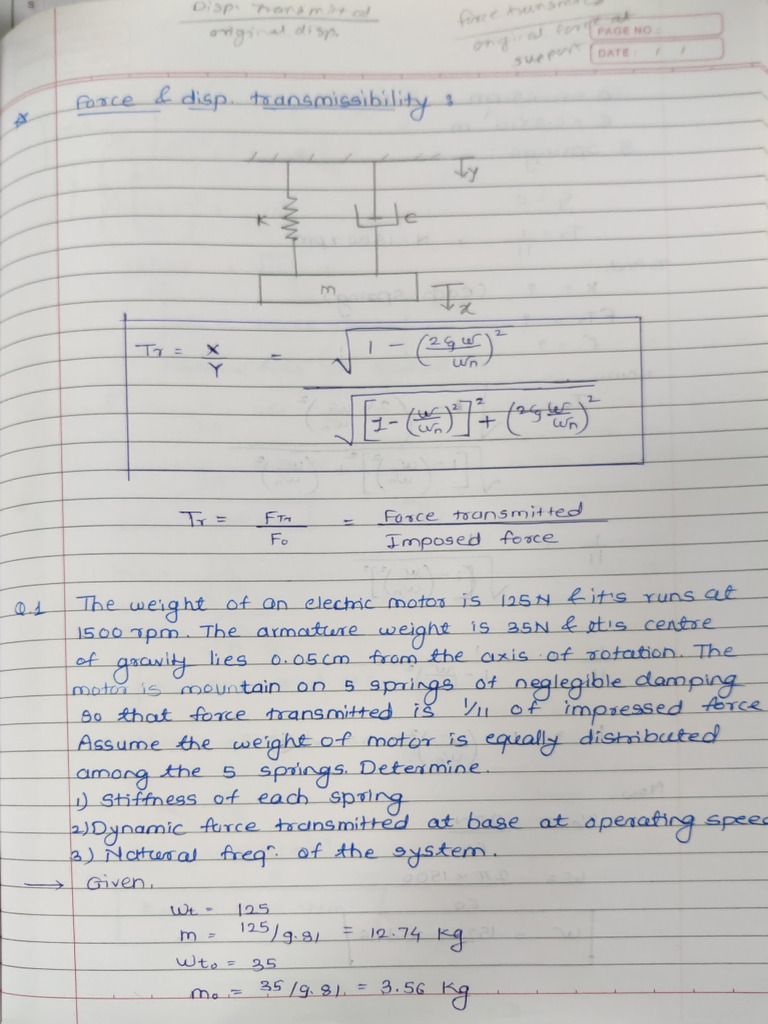 Disp. transmitted
original disp.
force transm
original force at
support
PAGE NO.:
DATE: / /
Force & disp. transmissibility :
y
K
c
m
x
Tr = X/Y = √(1 - (2ξω/ωn)²) / √([1-(ω/ωn)²]² + (2ξ ω/ωn)²)
Tr = FTr/Fo = Force transmitted/Imposed force
Q.1 The weight of an electric motor is 125N & it's runs at
1500 rpm. The armature weight is 35N & it's centre
of gravity lies 0.05cm from the axis of rotation. The
motor is mountain on 5 springs of neglegible damping
so that force transmitted is 1/11 of impressed force
Assume the weight of motor is equally distributed
among the 5 springs. Determine.
1) Stiffness of each spring
2) Dynamic force transmitted at base at operating speed
3) Natural freqⁿ. of the system.
→ Given,
Wt = 125
m = 125/9.81 = 12.74 kg
Wto = 35
mo = 35/9.81 = 3.56 kg